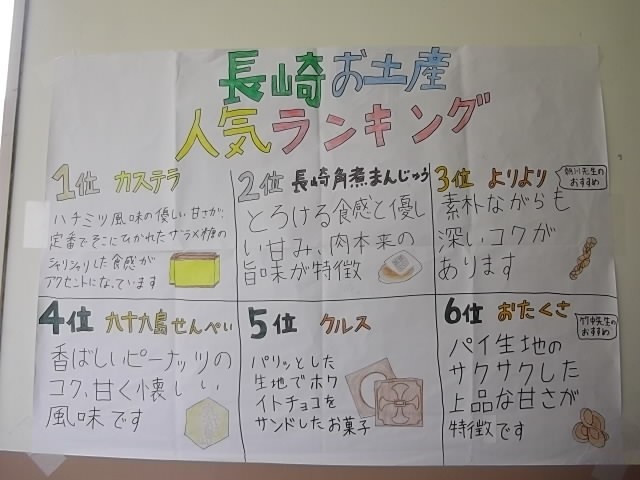 長崎お土産
人気ランキング
1位 カステラ
ハチミツ風味の優しい甘さが、
定番でそこにひかれたザラメ糖の
シャリシャリした食感が
アクセントになっています
2位 長崎角煮まんじゅう
とろける食感と優し
い甘み、肉本来の
旨味が特徴
3位 よりより
先生の
おすすめ
素朴ながらも
深いコクが
あります
4位 九十九島せんぺい
香ばしいピーナッツの
コク、甘く懐しい
風味です
5位 クルス
パリッとした
生地でホワ
イトチョコを
サンドしたお菓子
6位 おたくさ
竹中先生の
おすすめ
パイ生地の
サクサクした
上品な甘さが
特徴です